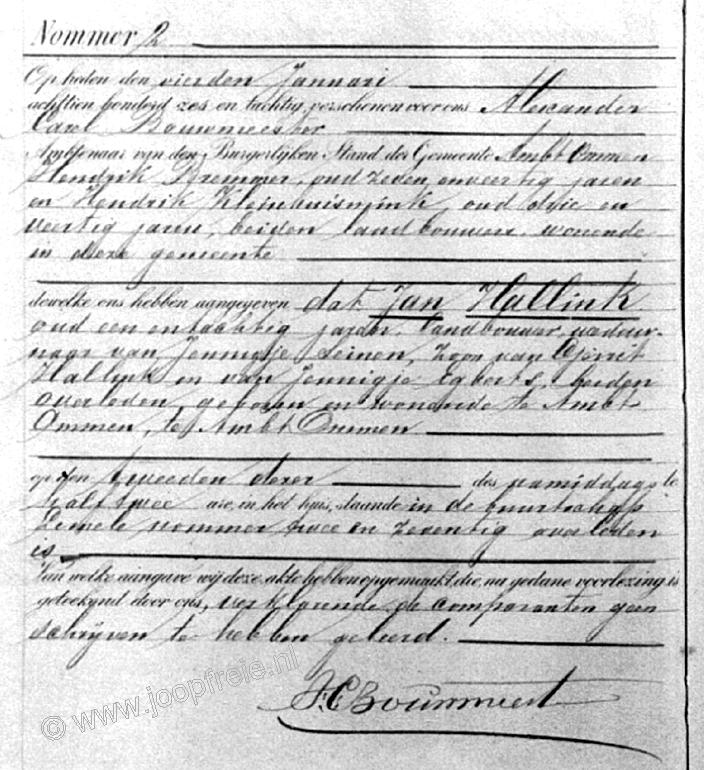 Nommer 2
Op heden den vierden Januari
achttien honderd zes en tachtig, verschenen voor ons Alexander
Carel Bouwmeester
Ambtenaar van den Burgerlijken Stand der Gemeente Ambt Ommen
Hendrik Bremmer, oud zeven en veertig jaren
en Hendrik Kleinhuismink, oud drie en
veertig jaren, beiden landbouwer, wonende
in deze gemeente
dewelke ons hebben aangegeven dat Jan Hallink
oud een en tachtig jaren, landbouwer, weduw-
naar van Jennigje Leinen, zoon van Gerrit
Hallink en van Jennigje Egberts, beiden
overleden, geboren en wonende te Ambt
Ommen, te Ambt Ommen
op den tweeden dezer des namiddags te
half twee ure, in het huis, staande in de buurtschap
Lemele nommer twee en zeventig overleden
is
Van welke aangave wij deze akte hebben opgemaakt, die, na gedane voorlezing is
geteekend door ons, verklarende de comparanten geen
schrijven te hebben geleerd.
ACBouwmeest
© www.joopfreie.nl